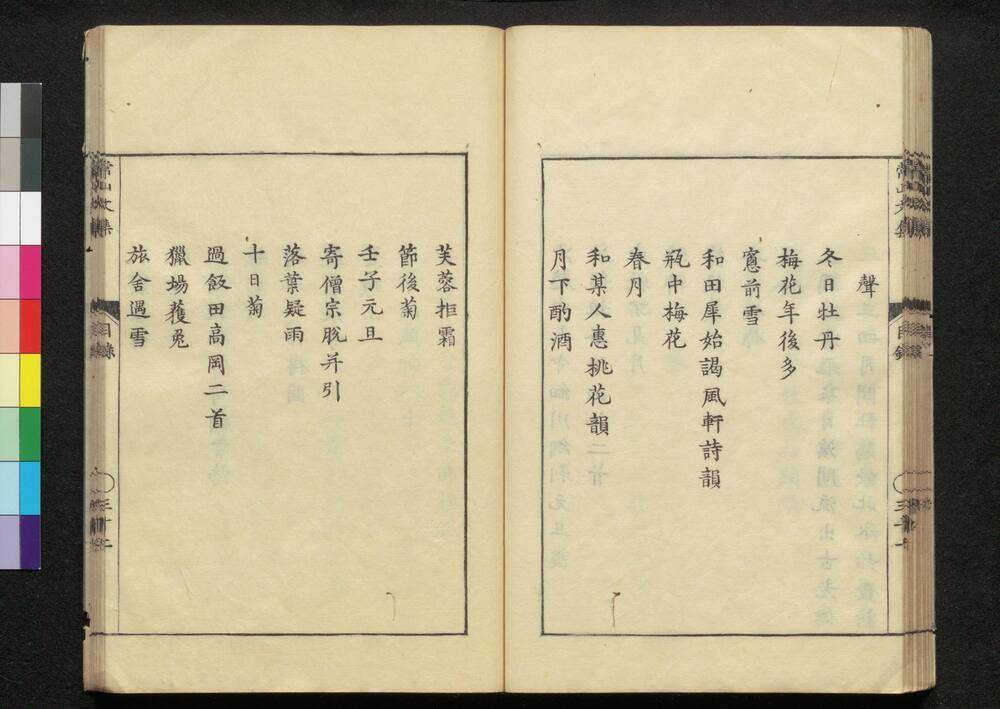 聲
冬日牡丹
梅花年後多
窻前雪
和田犀始謁風軒詩韻
瓶中梅花
春月
和某人惠挑花韻二首
月下酌酒
芙蓉拒霜
節後菊
壬子元旦
寄僧宗脫并引
落葉疑雨
十日菊
過飯田高岡二首
獵場獲兎
旅舍遇雪
常山文集
目錄